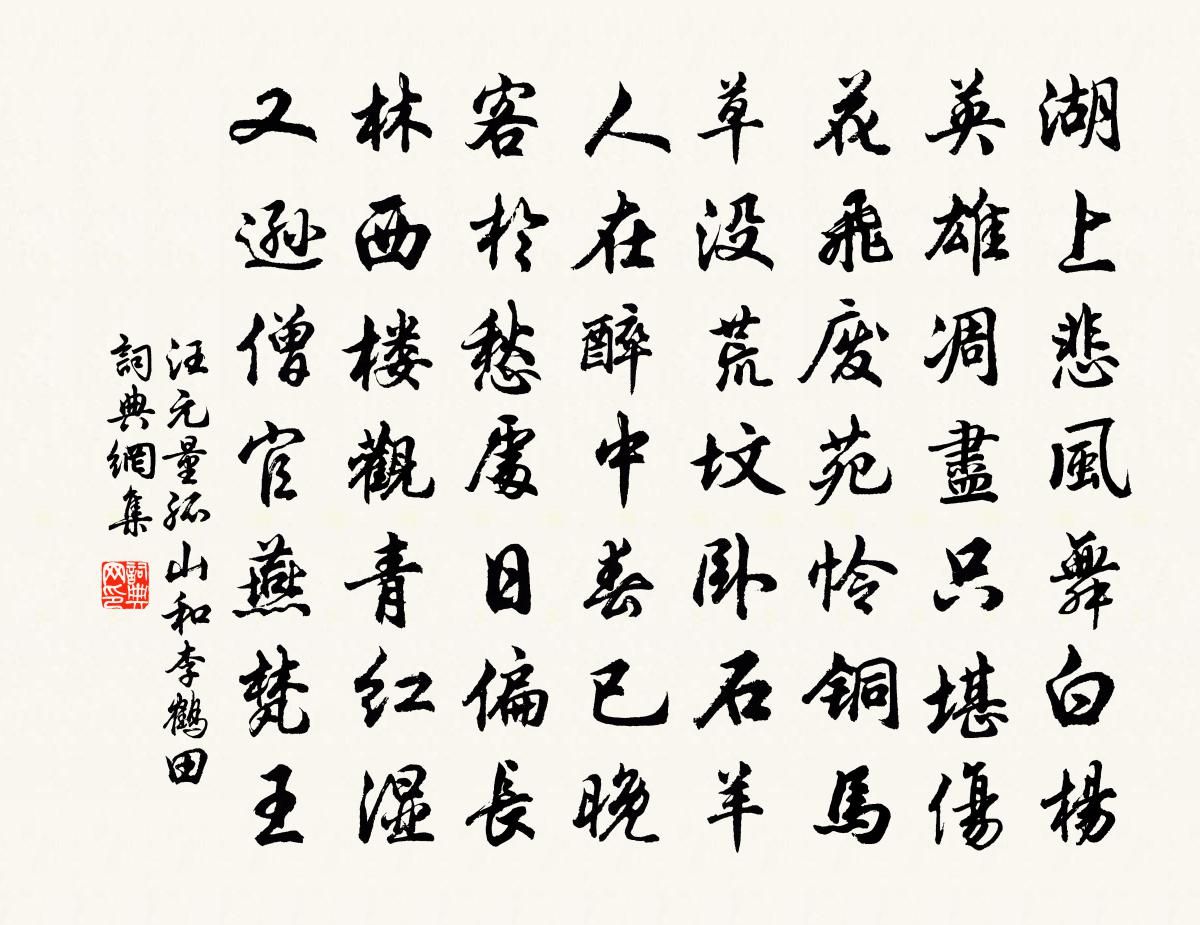 湖上悲風舞白楊
英雄凋盡只堪傷
花飛废苑怜铜馬
草没荒坟卧石羊
人在醉中春已晚
客於愁處日偏長
林西楼觀青红湿
又逊僧官燕梵王
汪元量孤山和李鶴田
詞典網集